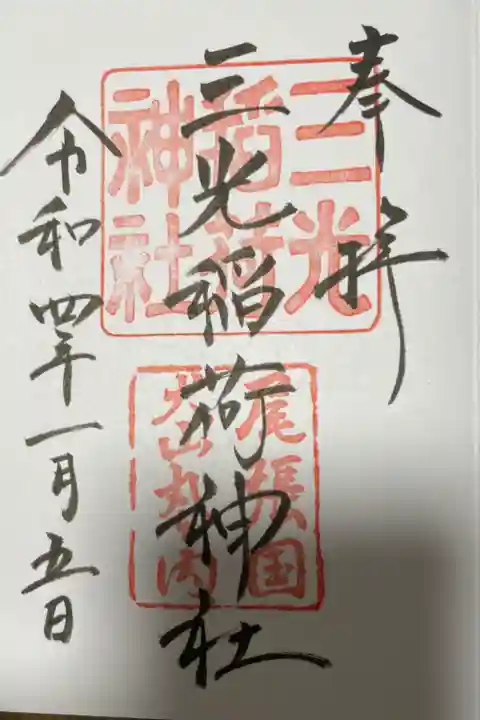 奉拝
三光稲荷神社
令和四年一月五日
三光
稲荷
神社
尾張国
犬山城内